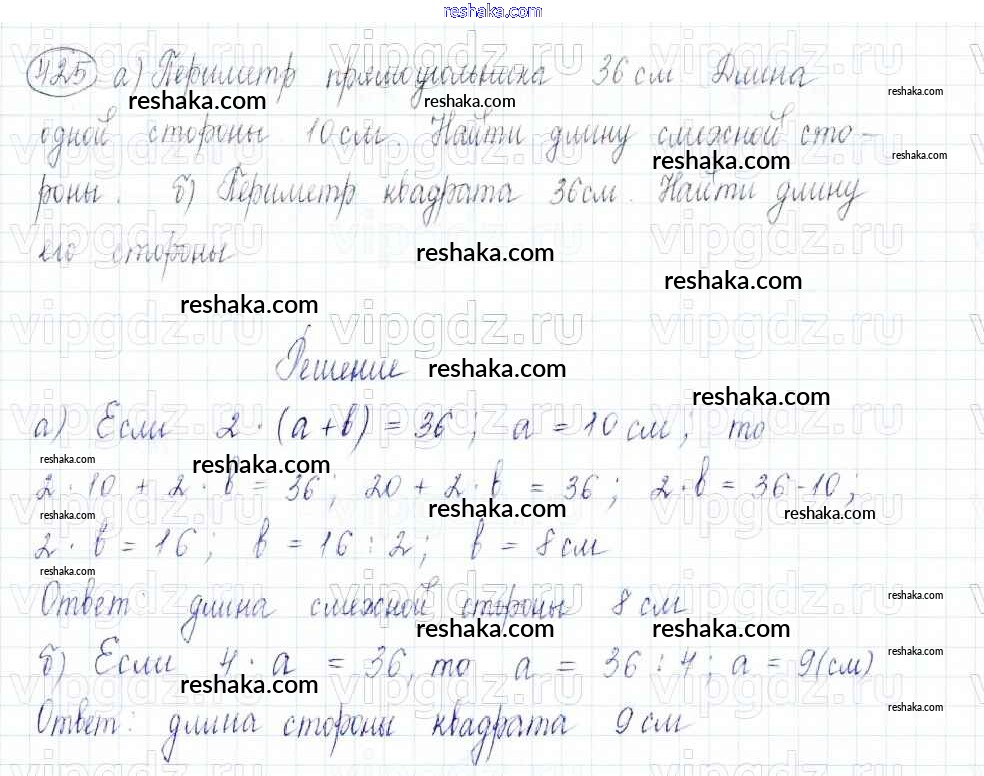 reshaka.com
425 а) Периметр прямоугольника 36 см Длина
одной стороны 10 см. Найти длину смежной сто-
роны. б) Периметр квадрата 36 см. Найти длину
его стороны
Решение
а) Если 2 · (a + b) = 36 ; a = 10 см ; то
2 · 10 + 2 · b = 36 ; 20 + 2 · b = 36 ; 2 · b = 36 - 10 ;
2 · b = 16 ; b = 16 : 2 ; b = 8 см
Ответ: длина смежной стороны 8 см
б) Если 4 · a = 36, то a = 36 : 4 ; a = 9 (см)
Ответ: длина стороны квадрата 9 см